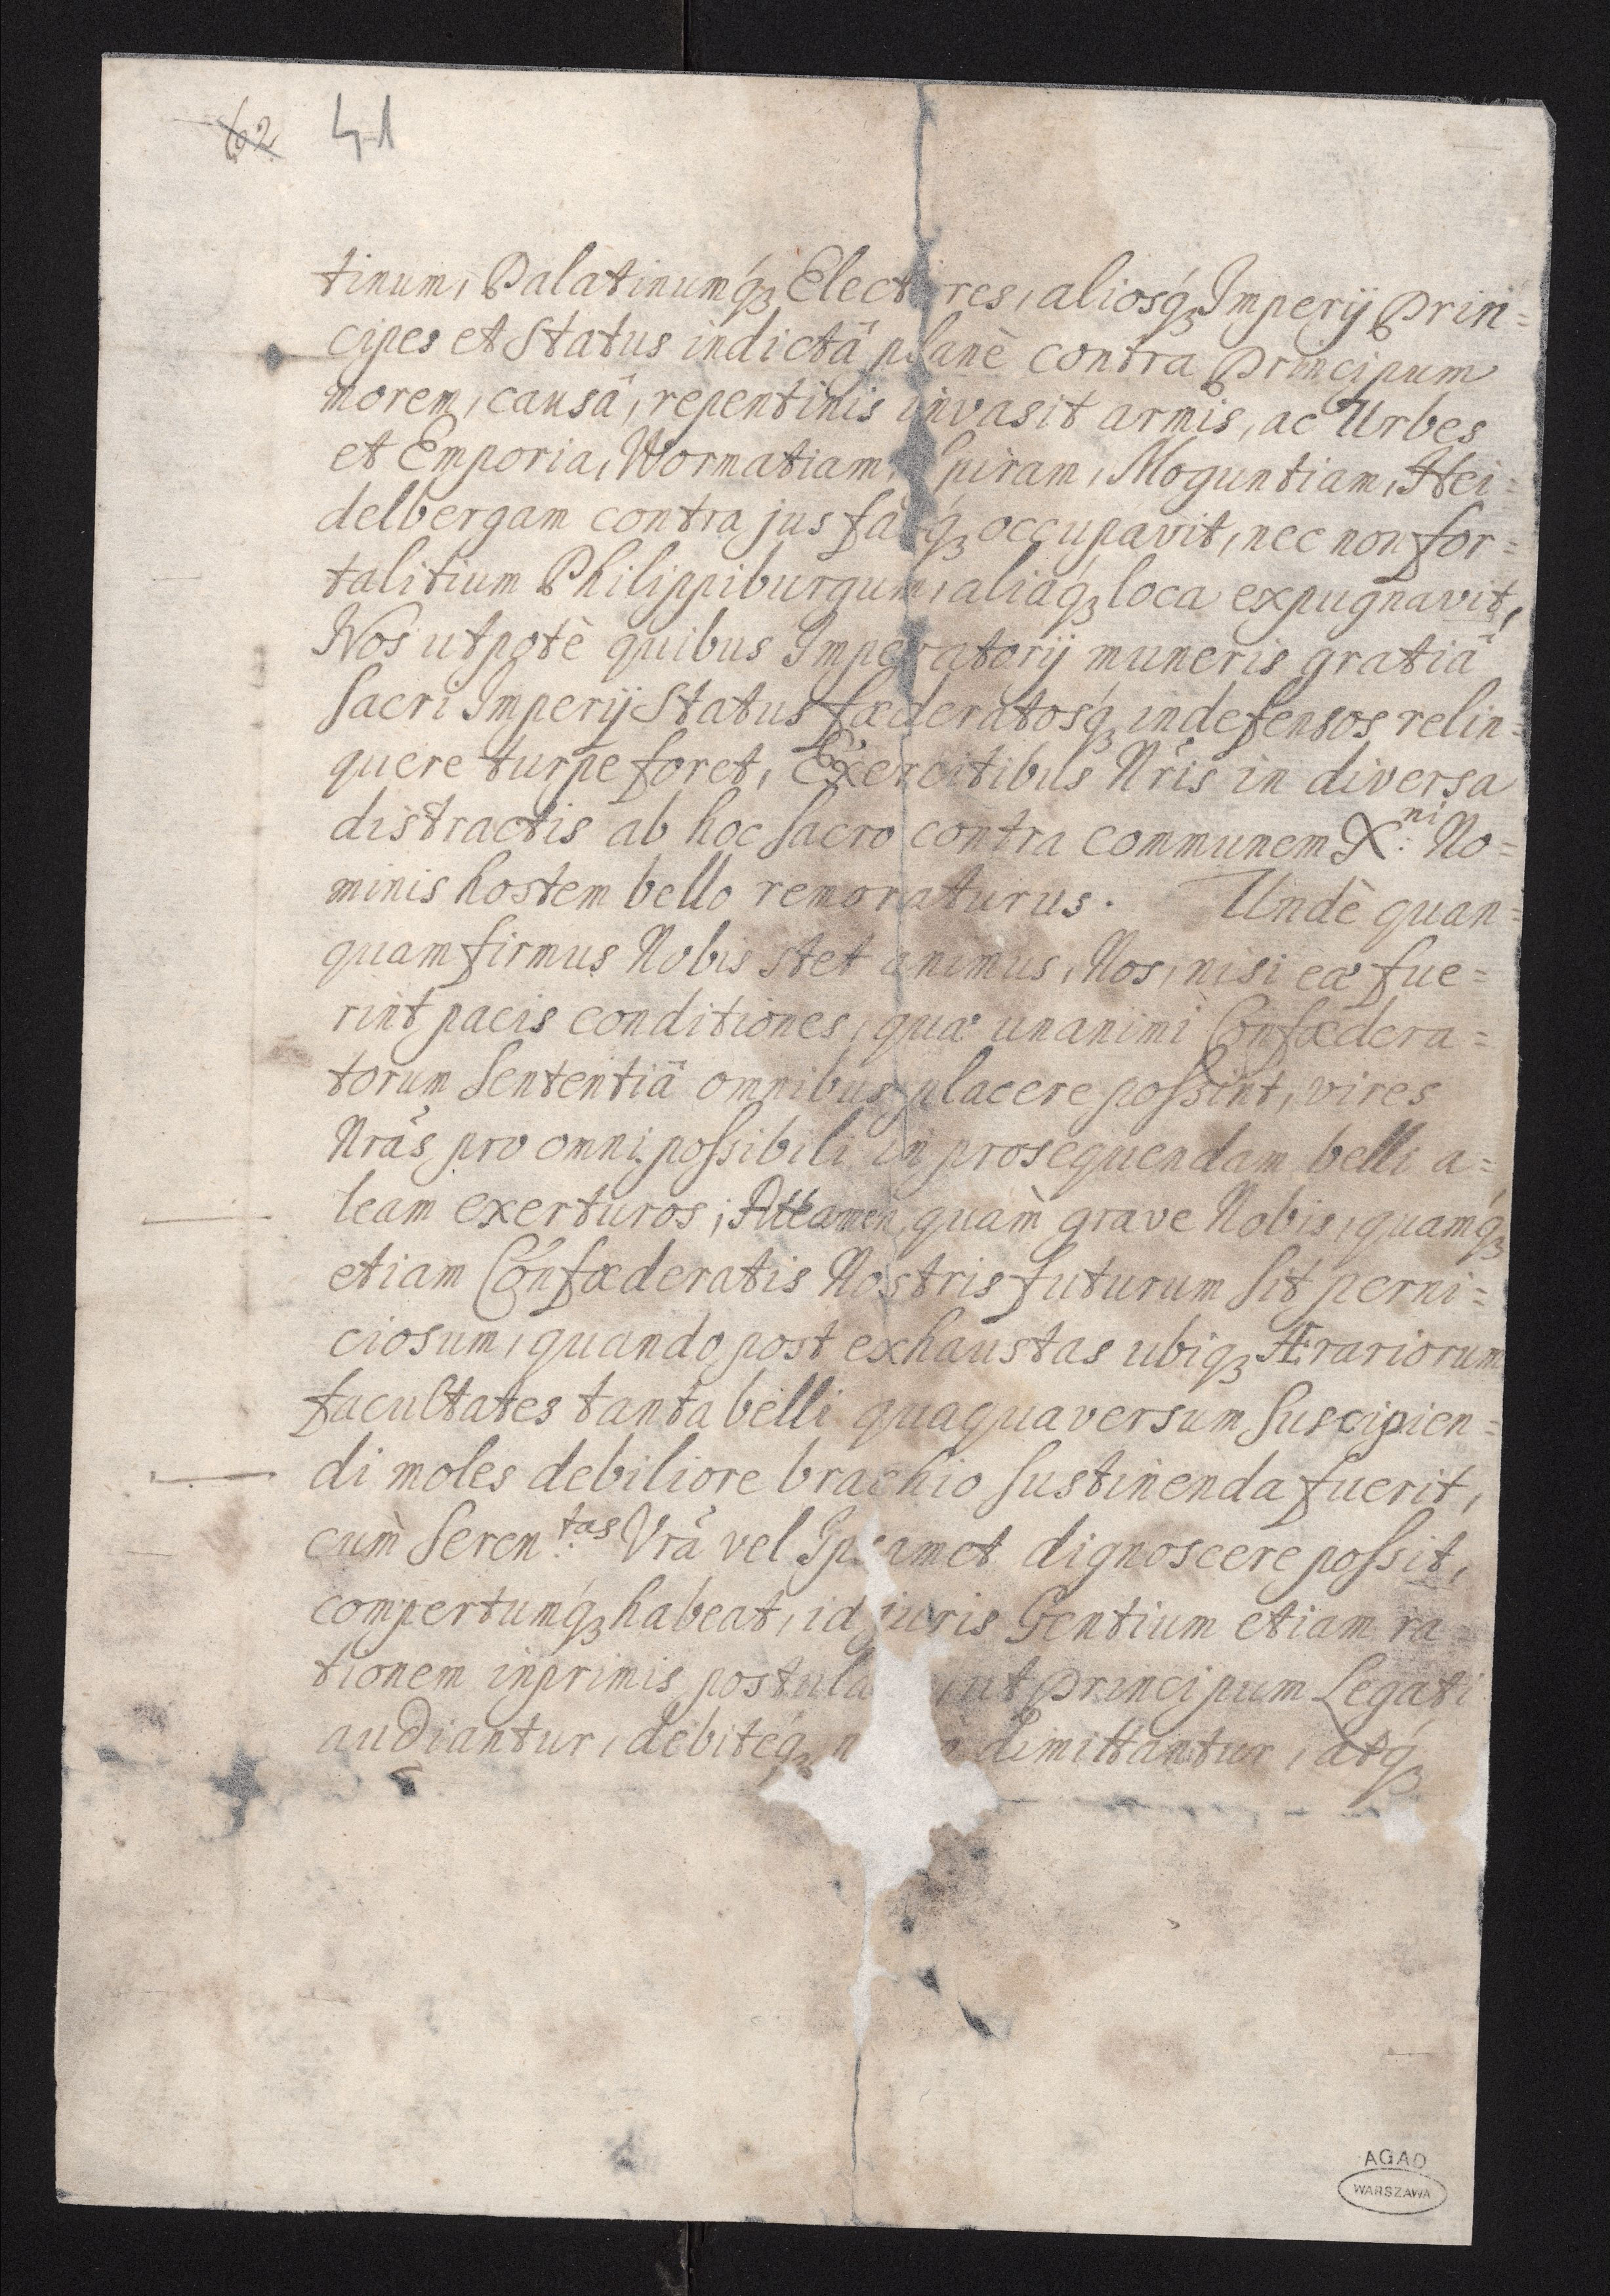 62 41
tinum, Palatinumq́ꝫ Electores, aliosq́ꝫ Imperÿ Prin=
cipes et Status indictâ planè contra Principum
morem, causâ, repentinis invasit armis, ac Urbes
et Emporia, Wormatiam, Spiram, Moguntiam, Hei=
delbergam contra jus fasq́ꝫ occupavit, nec non for=
talitium Philippiburgum, aliaq́ꝫ loca expugnavit,
Nos utpotè quibus Imperatorÿ muneris gratiâ
Sacri Imperÿ Status fœderatosq́ꝫ indefensos relin=
quere turpe foret, Exercitibus Nr̃is in diversa
distractis ab hoc sacro contra communem X.ⁿⁱ No=
minis hostem bello remoraturus. Undè quan=
quam firmus Nobis stet animus, Nos, nisi eæ fue=
rint pacis conditiones, quæ unanimi Confœdera=
torum Sententiâ omnibus placere possint, vires
Nr̃as pro omni possibili in prosequendam belli a=
leam exerturos; Attamen, quàm grave Nobis, quamq́ꝫ
etiam Confœderatis Nostris futurum sit perni=
ciosum, quando post exhaustas ubiqꝫ Ærariorum
facultates tanta belli quaquaversum suscipien=
di moles debiliore brachio sustinenda fuerit,
cùm Seren.ᵗᵃˢ Vr̃a vel Ipsamet dignoscere possit,
compertumq́ꝫ habeat, id juris Gentium etiam ra=
tionem inprimis postula ut Principum Legati
audiantur, debitéq́ꝫ dimittantur, atq́ꝫ
AGAD
WARSZAWA